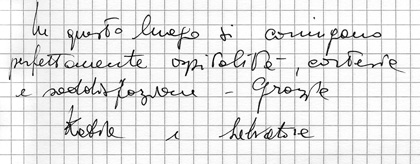 In questo luogo si coniugano
perfettamente ospitalità, cortesia
e soddisfazione - Grazie
e Salvatore